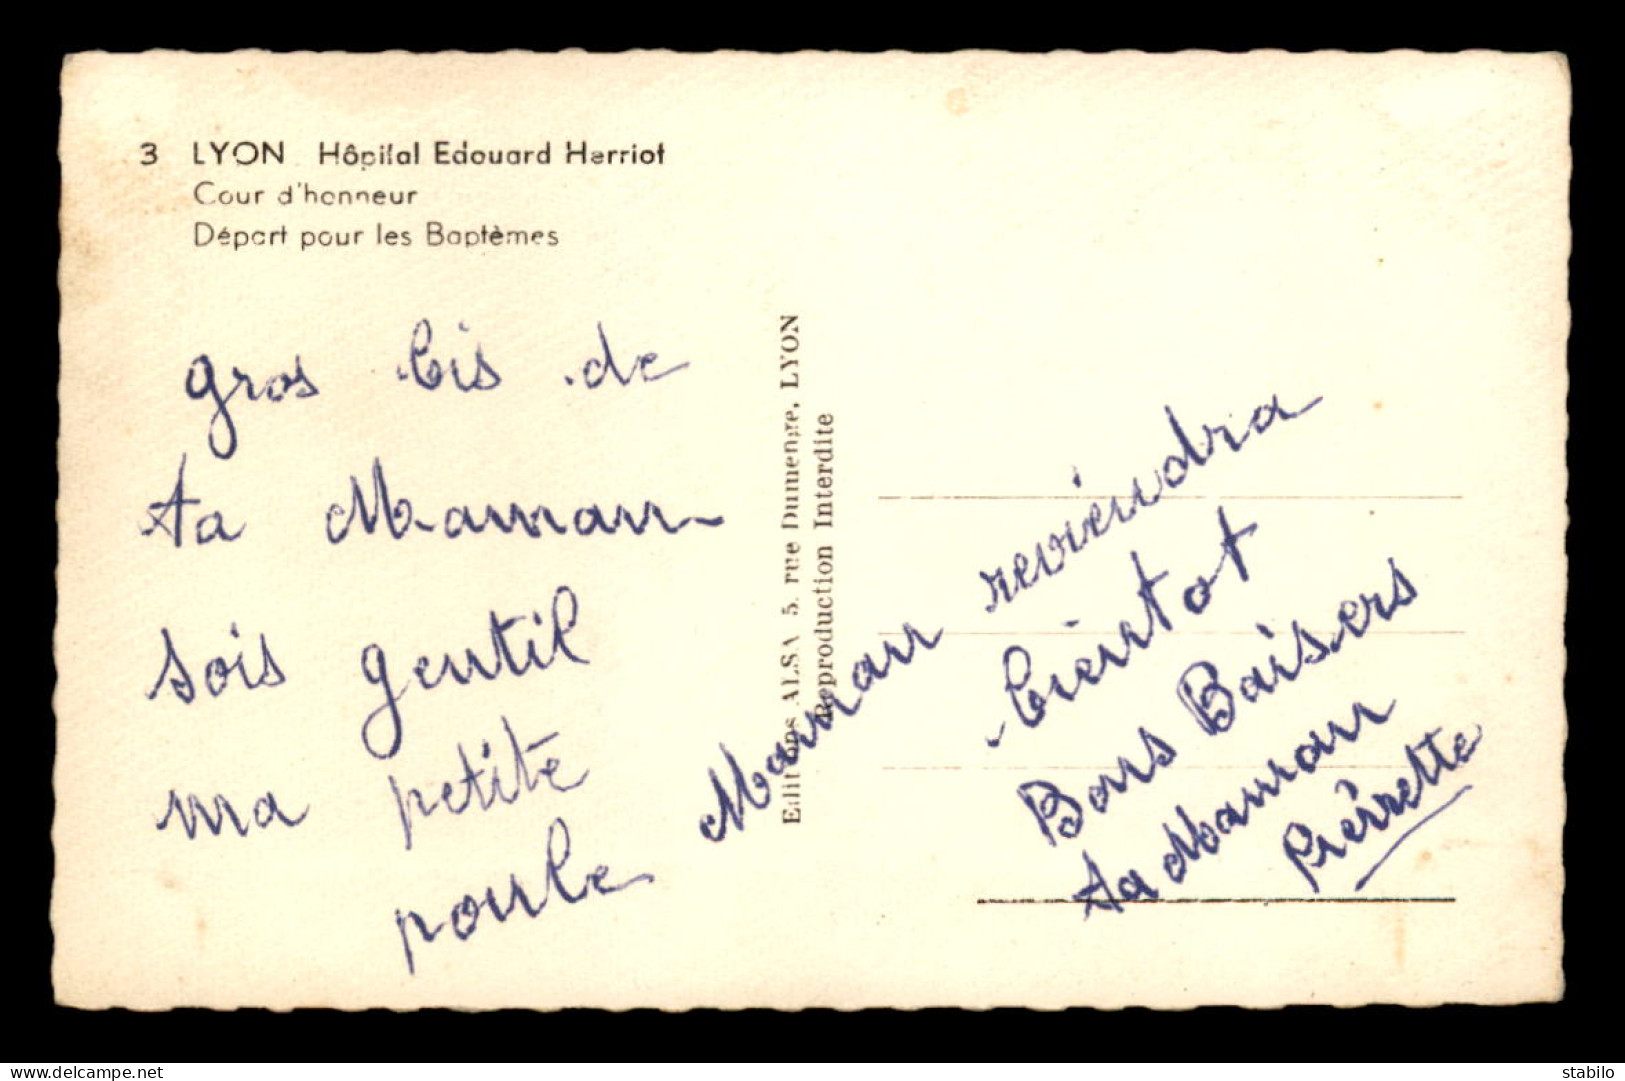 3 LYON Hôpital Edouard Herriot
Cour d'honneur
Départ pour les Baptêmes
gros bis de
ta Maman
sois gentil
ma petite
poule
Editions ALSA 5, rue Dumenge, LYON
Reproduction Interdite
Maman reviendra
bientot
Bons Baisers
ta Maman
Pierrette
delcampe.net
stabilo